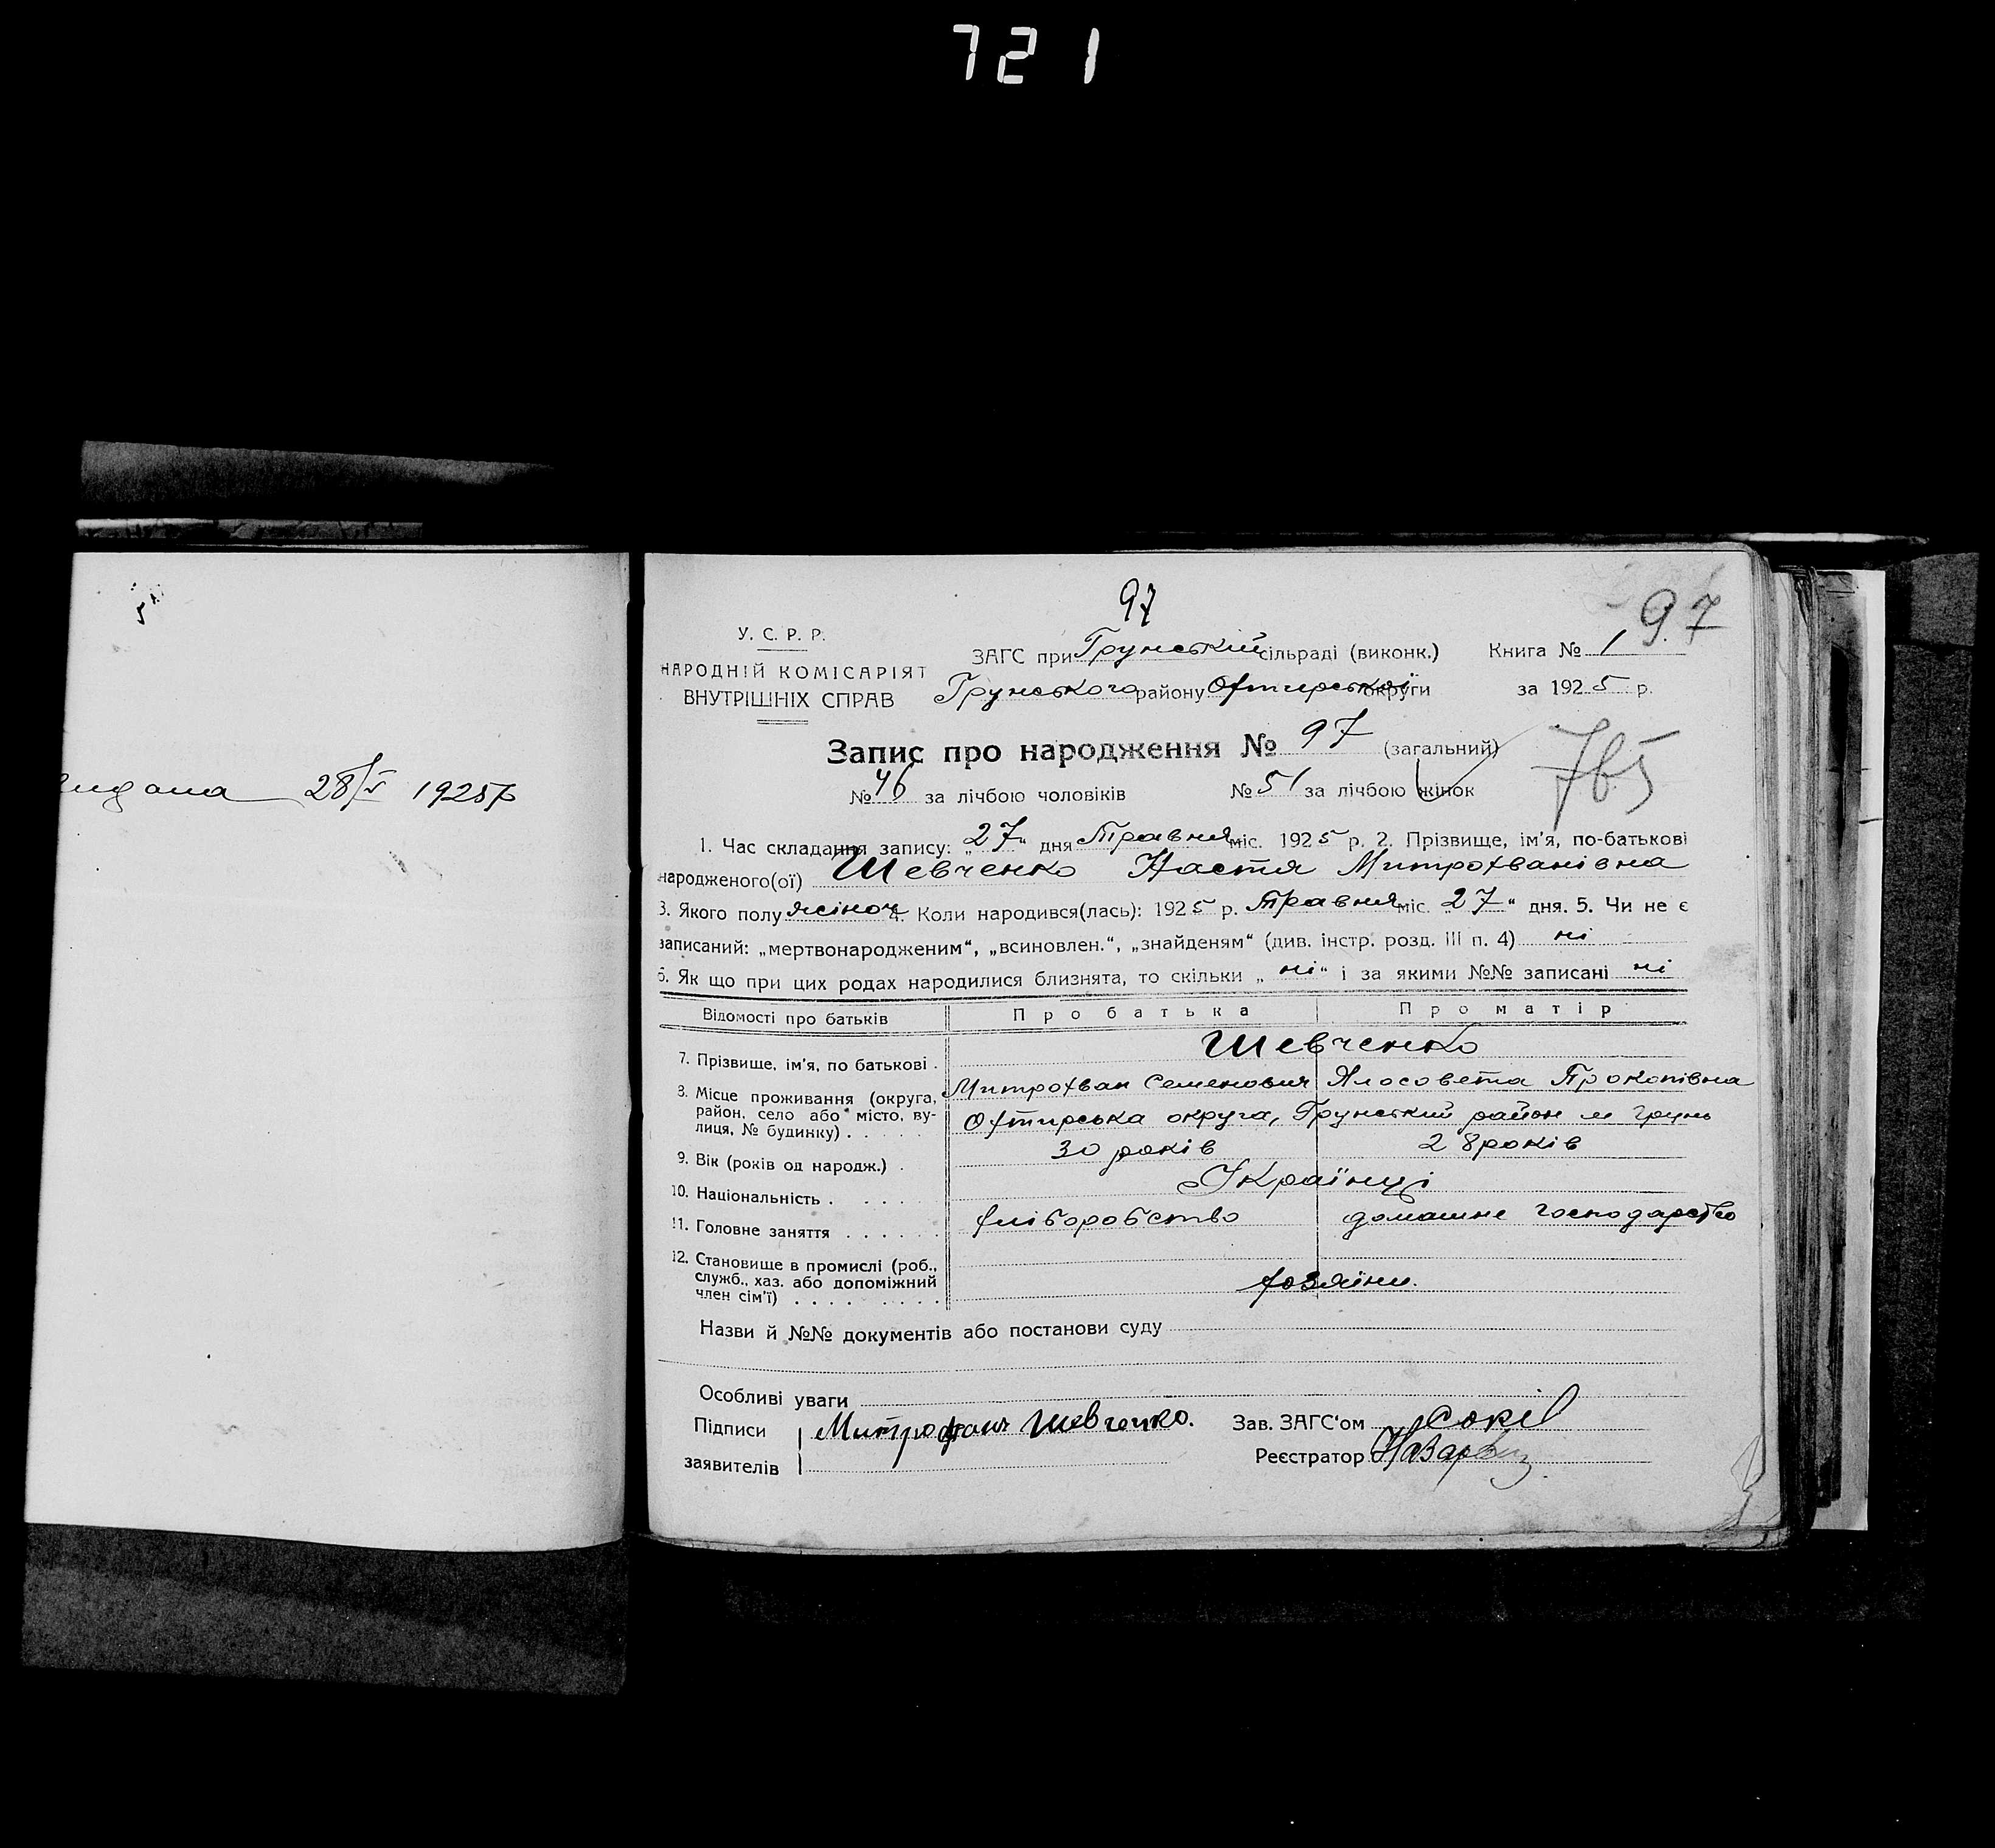 721
28/V 1925р
97
97
У. С. Р. Р.
НАРОДНІЙ КОМІСАРІЯТ
ВНУТРІШНІХ СПРАВ
ЗАГС при Грунський сільраді (виконк.) Книга № 1
Грунського району Охтирської округи за 1925 р.
Запис про народження № 97 (загальний)
765
№ 46 за лічбою чоловіків № 51 за лічбою жінок
1. Час складання запису: „27“ дня Травня міс. 1925 р. 2. Прізвище, ім'я, по-батькові
народженого(ої) Шевченко Настя Митрохванівна
3. Якого полу жіноч 4. Коли народився(лась): 1925 р. Травня міс. „27“ дня. 5. Чи не є
записаний: „мертвонародженим“, „всиновлен.“, „знайденям“ (див. інстр. розд. III п. 4) ні
6. Як що при цих родах народилися близнята, то скільки „ні“ і за якими №№ записані ні
Відомості про батьків Про батька Про матір
7. Прізвище, ім'я, по батькові . Шевченко
Митрохван Семенович Ялосовета Прокопівна
8. Місце проживання (округа, район, село або місто, ву-
лиця, № будинку) . . . . . Охтирська округа, Грунський район м Грунь
9. Вік (років од народж.) . 30 років 28 років
10. Національність . . . . . Українці
11. Головне заняття . . . . . . хліборобство домашне господарство
12. Становище в промислі (роб.,
служб., хаз. або допоміжний
член сім'ї) . . . . . . . . . хозяіни.
Назви й №№ документів або постанови суду
Особливі уваги
Підписи Митрофанъ Шевченко. Зав. ЗАГС'ом Сокіл
заявителів Реєстратор